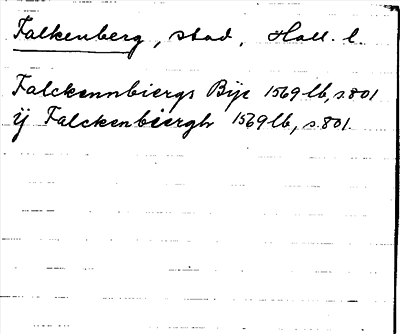 Falkenberg, stad, Hall. l.
Falckennbiergs Bye 1569 lb, s. 801
ÿ Falckenbiergh 1569 lb, s. 801